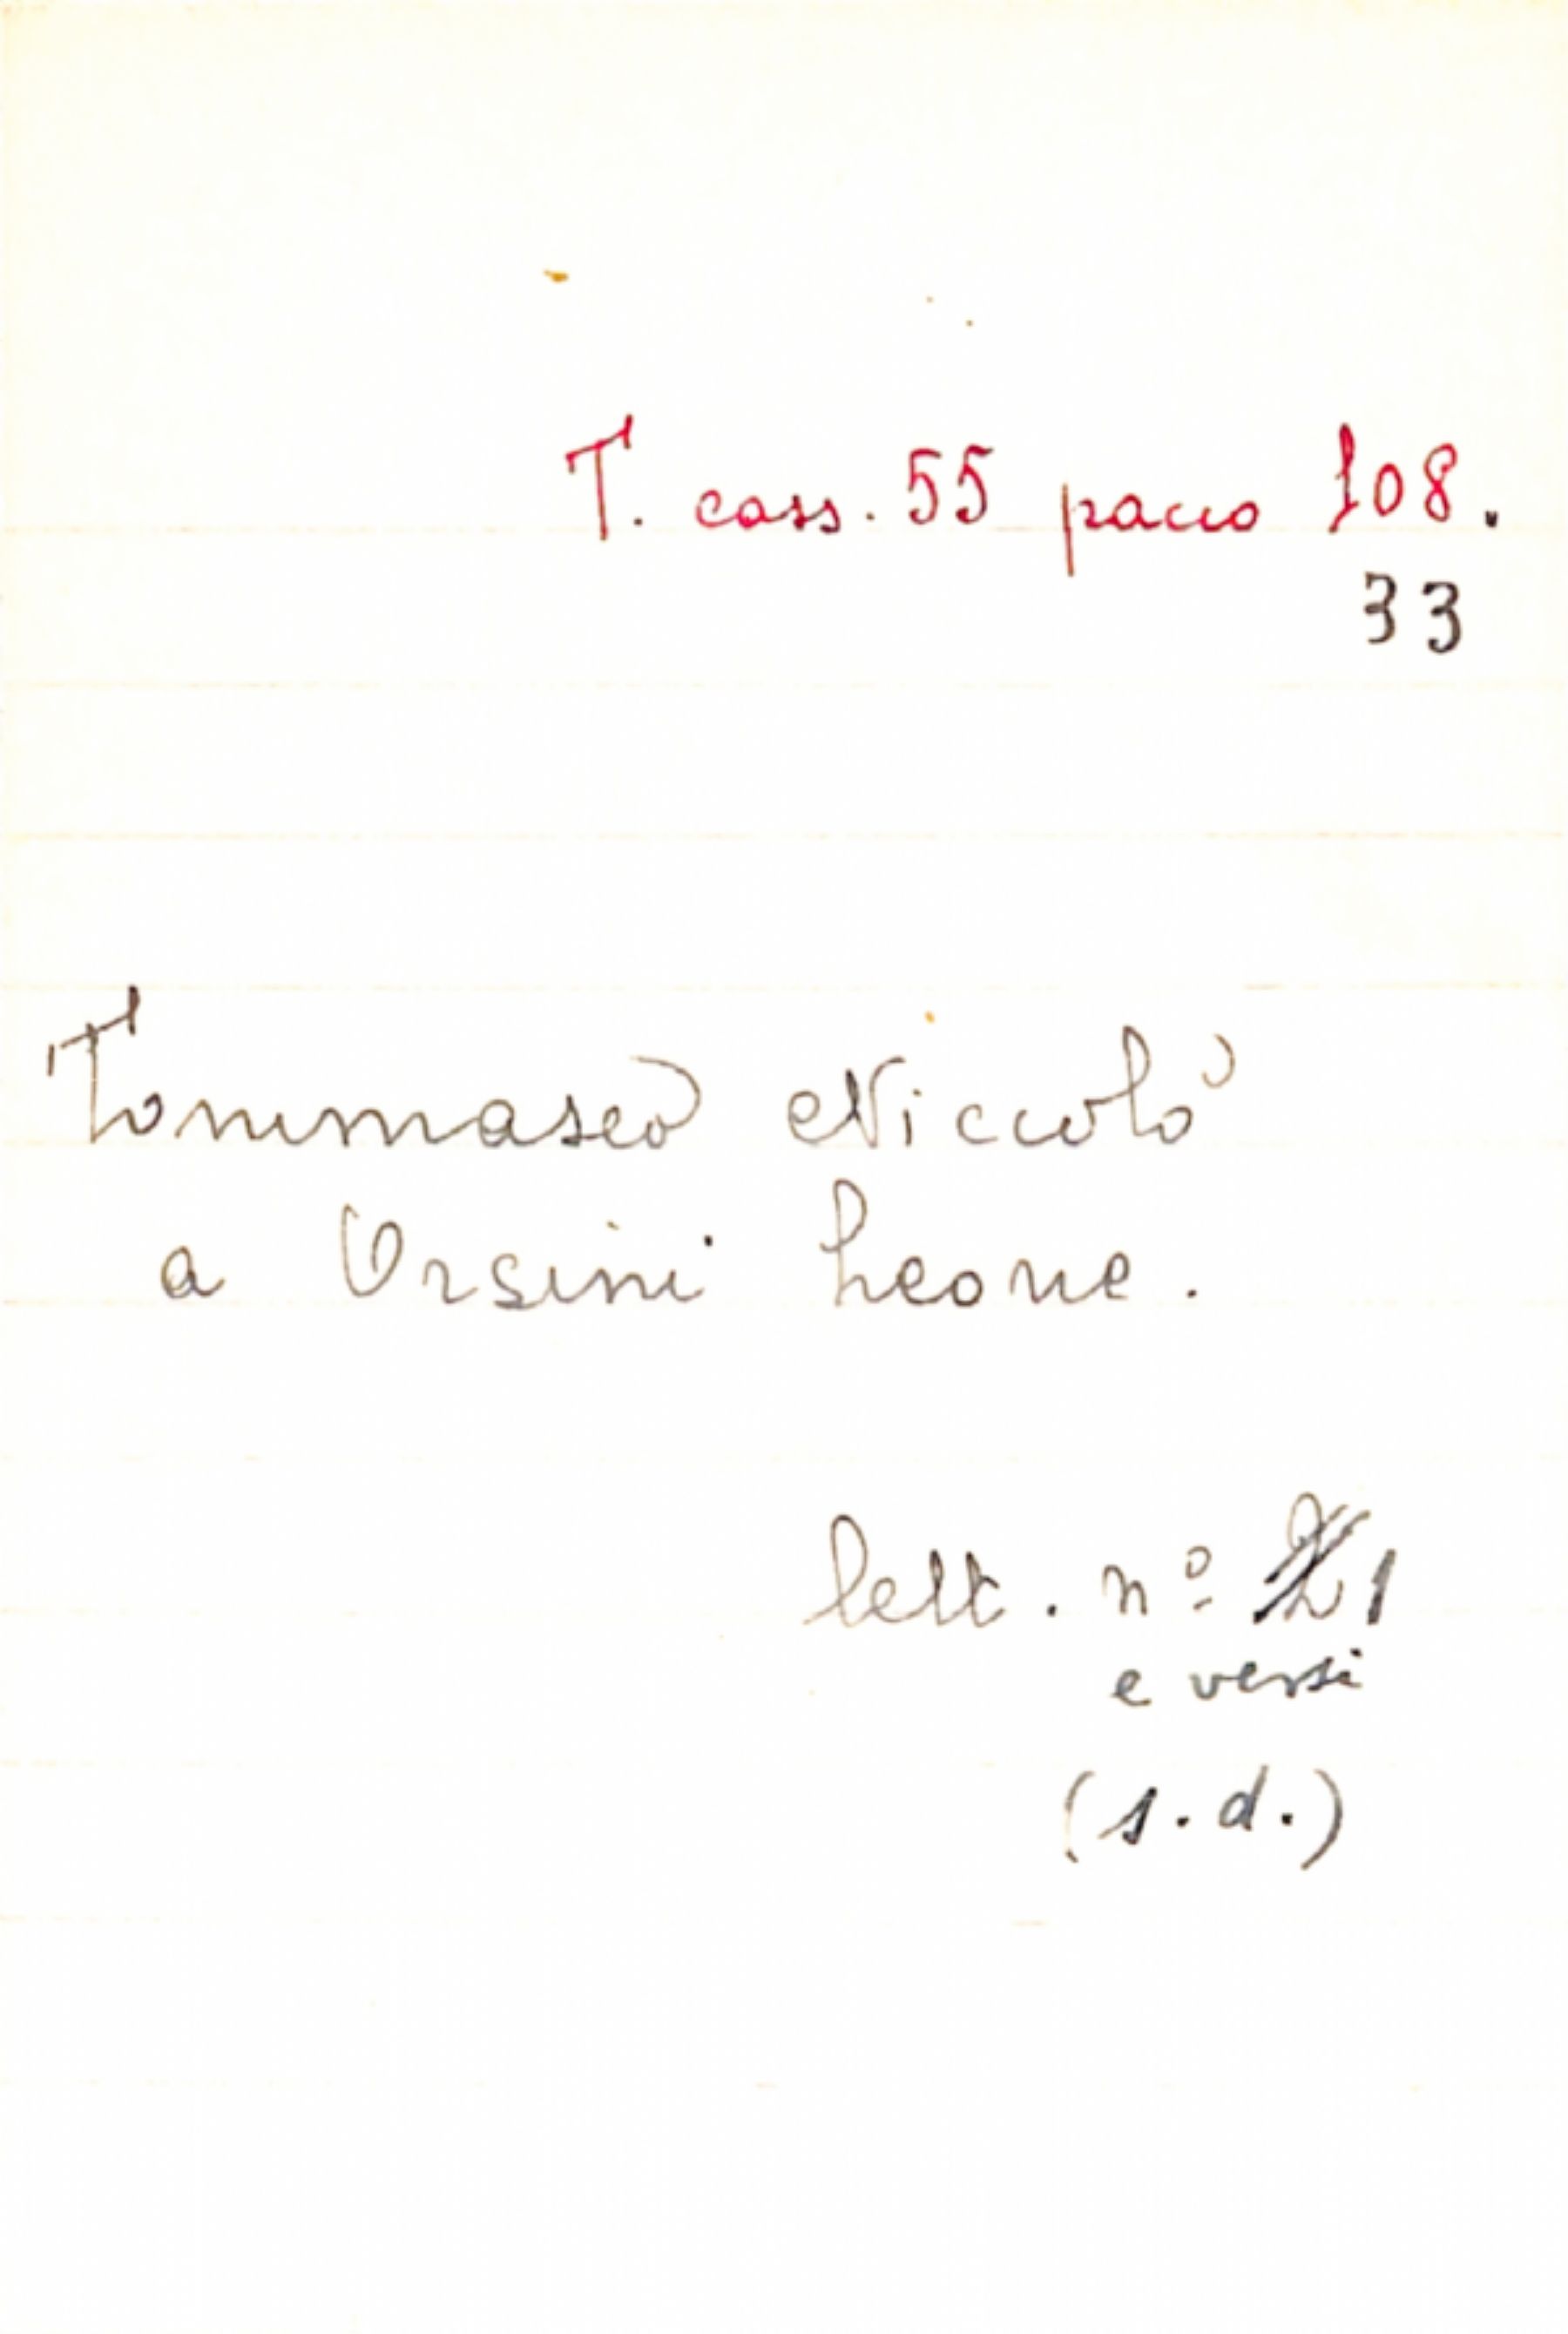 T. cass. 55 pacco 108.
33
Tommaseo Niccolò
a Orsini Leone.
lett. nº 1
e versi
(s.d.)